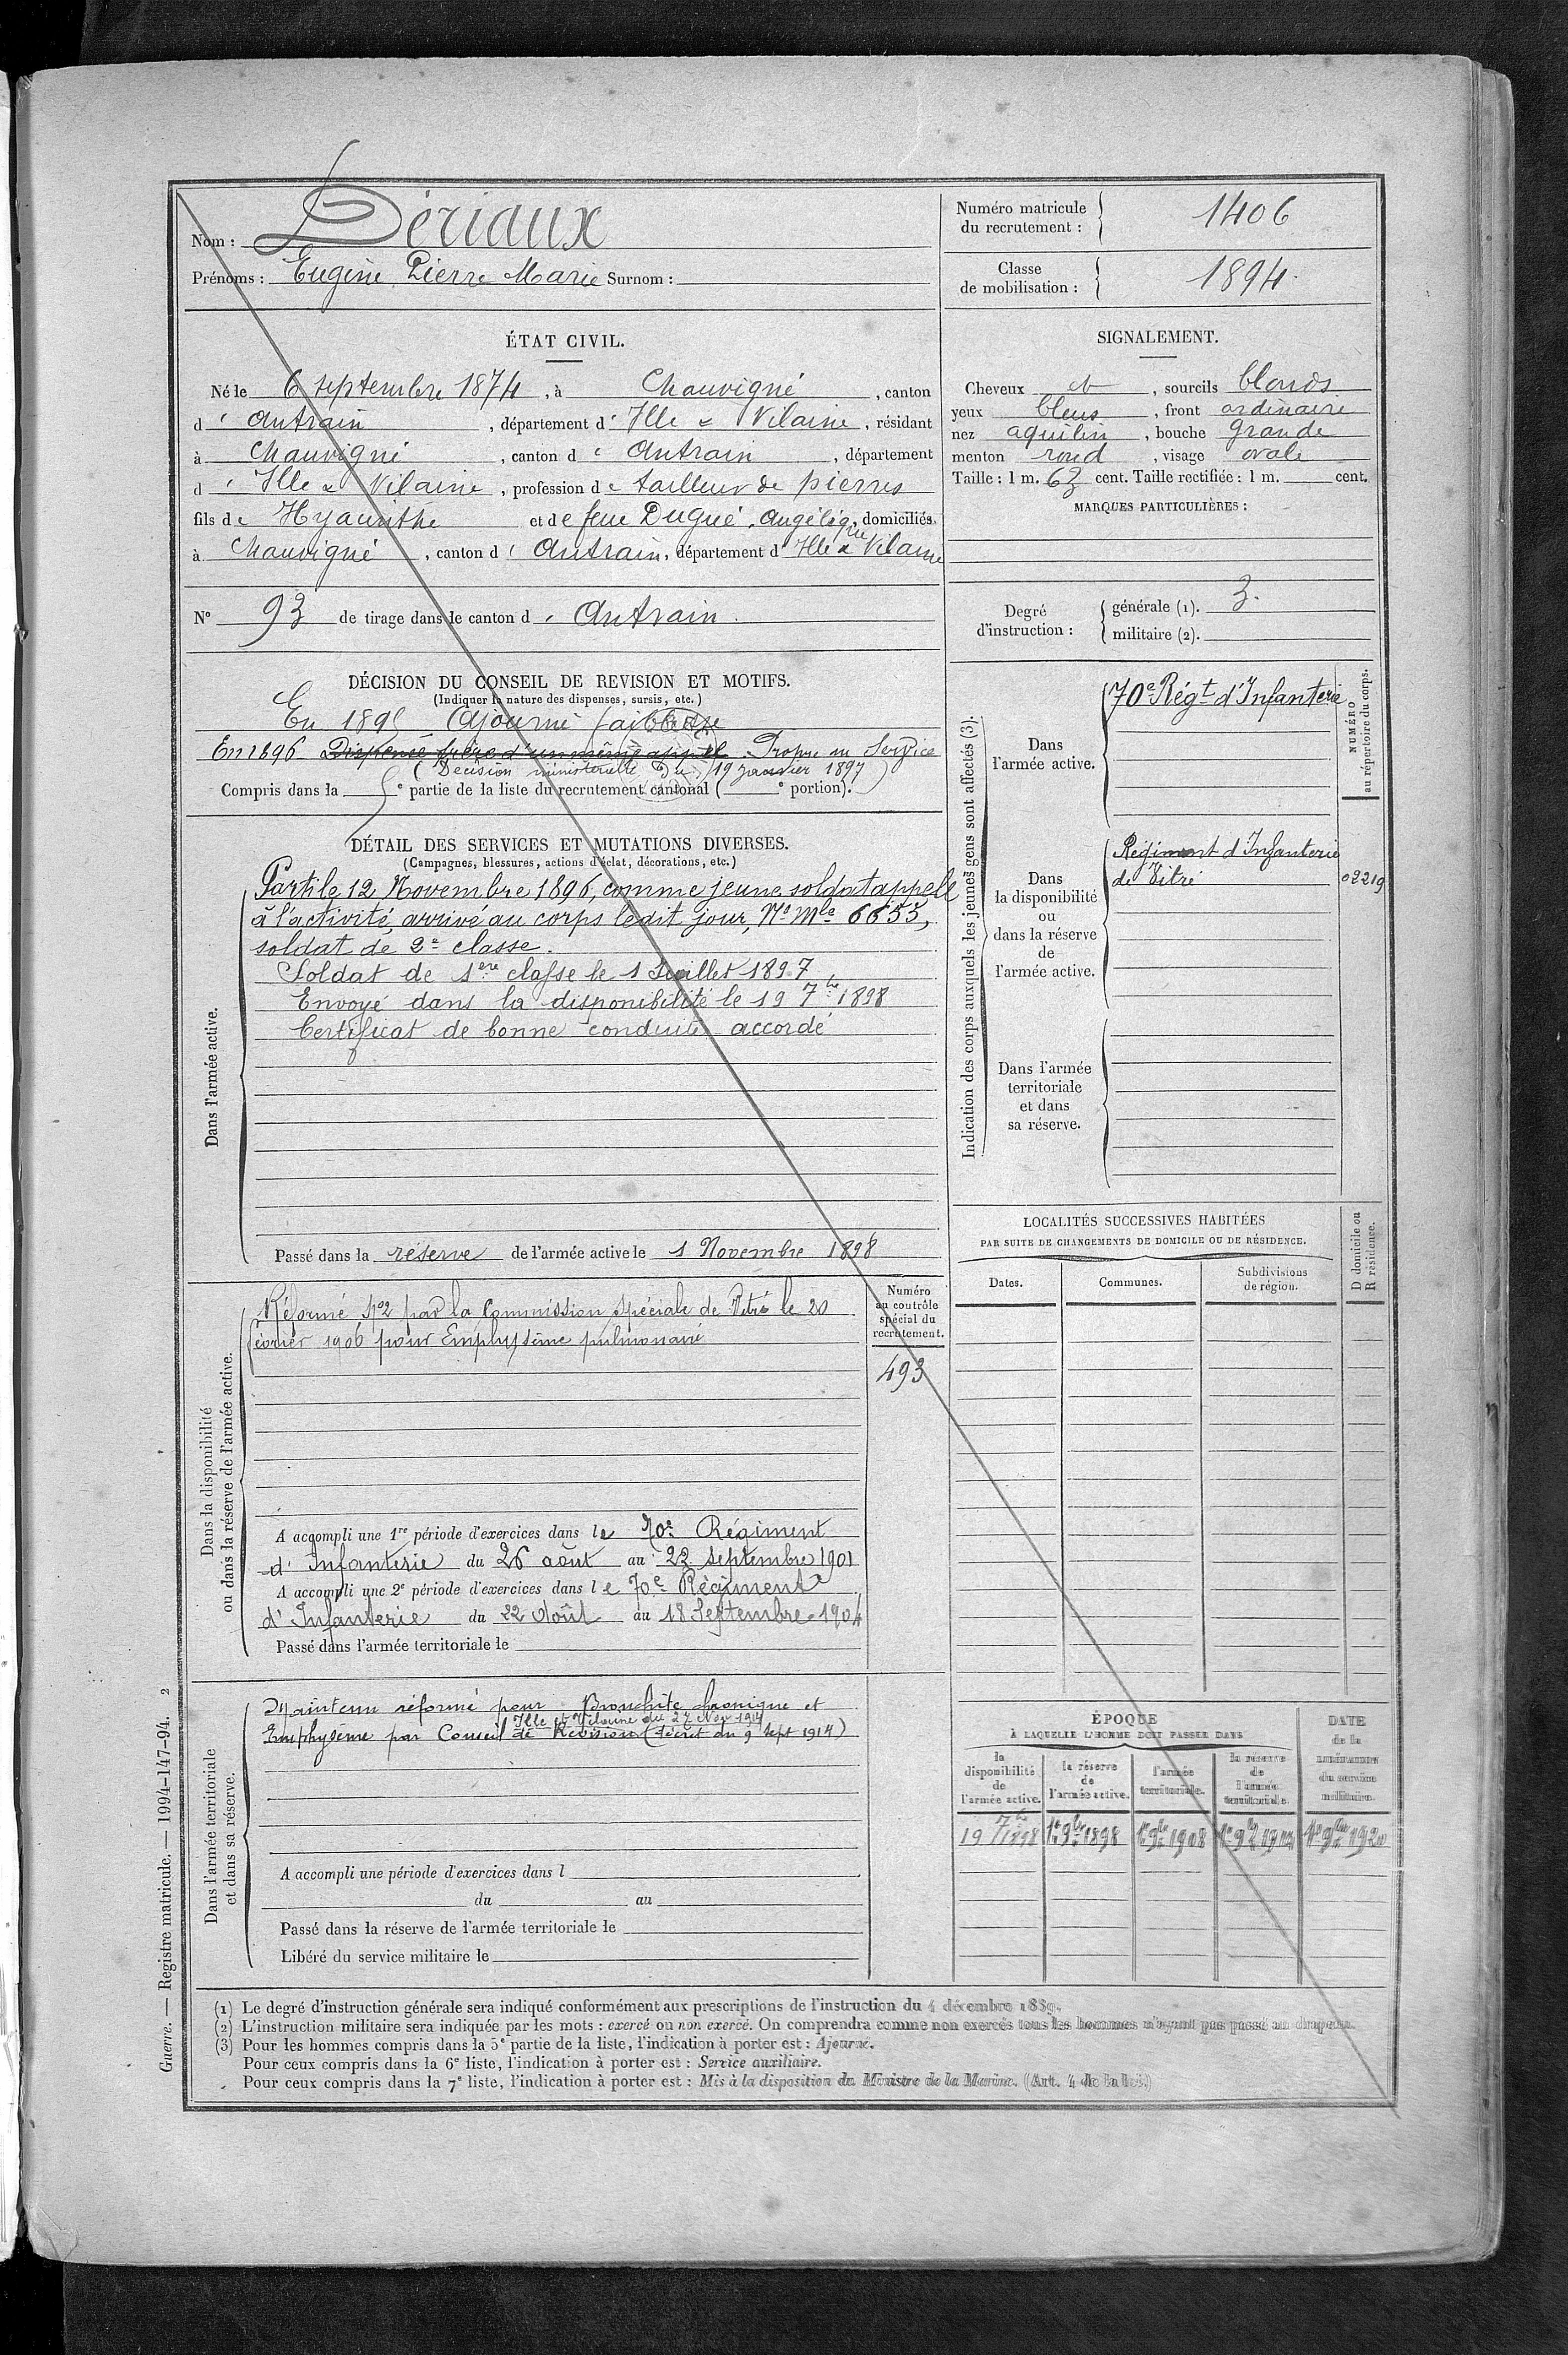 Nom : Dériaux
Prénoms : Eugène Pierre Marie Surnom :
Numéro matricule du recrutement : 1406
Classe de mobilisation : 1894.
ÉTAT CIVIL.
Né le 6 septembre 1874, à Chauvigné, canton
d' Antrain, département d' Ille & Vilaine, résidant
à Chauvigné, canton d' Antrain, département
d' Ille & Vilaine, profession de tailleur de pierres
fils de Hyacinthe et de feue Dugué, Angélique, domiciliés
à Chauvigné, canton d' Antrain, département d' Ille & Vilaine
SIGNALEMENT.
Cheveux et, sourcils blonds
yeux bleus, front ordinaire
nez aquilin, bouche grande
menton rond, visage ovale
Taille : 1 m. 63 cent. Taille rectifiée : 1 m. cent.
MARQUES PARTICULIÈRES :
N° 93 de tirage dans le canton d' Antrain.
Degré d'instruction :
générale (1). 3.
militaire (2).
DÉCISION DU CONSEIL DE REVISION ET MOTIFS.
(Indiquer la nature des dispenses, sursis, etc.)
En 1895 Ajourné faiblesse
En 1896 Dispensé frère d'un même appel Propre au Service
(Décision ministérielle du 19 janvier 1897)
Compris dans la 5e partie de la liste du recrutement cantonal ( e portion).
DÉTAIL DES SERVICES ET MUTATIONS DIVERSES.
(Campagnes, blessures, actions d'éclat, décorations, etc.)
Dans l'armée active.
Parti le 12 Novembre 1896, comme jeune soldat appelé
à l'activité, arrivé au corps le dit jour, N° Mle 6655,
soldat de 2e classe.
Soldat de 1ère classe le 1 Juillet 1897
Envoyé dans la disponibilité le 19 7bre 1898
Certificat de bonne conduite accordé
Passé dans la réserve de l'armée active le 1 Novembre 1898
Indication des corps auxquels les jeunes gens sont affectés (3).
NUMÉRO
au répertoire du corps.
Dans
l'armée active.
70e Régt d'Infanterie
Dans
la disponibilité
ou
dans la réserve
de
l'armée active.
Régiment d'Infanterie
de Vitré
02219
Dans l'armée
territoriale
et dans
sa réserve.
Dans la disponibilité
ou dans la réserve de l'armée active.
Réformé N°2 par la Commission spéciale de Vitré le 20
février 1906 pour Emphysème pulmonaire
Numéro
au contrôle
spécial du
recrutement.
493
A accompli une 1re période d'exercices dans le 70e Régiment
d'Infanterie du 26 août au 22 septembre 1901
A accompli une 2e période d'exercices dans le 70e Régiment
d'Infanterie du 22 Août au 18 Septembre 1904
Passé dans l'armée territoriale le
LOCALITÉS SUCCESSIVES HABITÉES
PAR SUITE DE CHANGEMENTS DE DOMICILE OU DE RÉSIDENCE.
Dates.
Communes.
Subdivisions
de région.
D domicile ou
R résidence.
Dans l'armée territoriale
et dans sa réserve.
Maintenu réformé pour Bronchite chronique et
Ille et Vilaine du 27 Nov 1914
Emphysème par Conseil de Révision (décret du 9 sept 1914)
A accompli une période d'exercices dans l
du au
Passé dans la réserve de l'armée territoriale le
Libéré du service militaire le
ÉPOQUE
À LAQUELLE L'HOMME DOIT PASSER DANS
la disponibilité de l'armée active.
la réserve de l'armée active.
l'armée territoriale.
la réserve de l'armée territoriale.
DATE de la LIBÉRATION du service militaire.
19 7bre 1898
1er 9bre 1898
1er 9bre 1908
1er 9bre 1914
1er 9bre 1920
(1) Le degré d'instruction générale sera indiqué conformément aux prescriptions de l'instruction du 4 décembre 1889.
(2) L'instruction militaire sera indiquée par les mots : exercé ou non exercé. On comprendra comme non exercés tous les hommes n'ayant pas passé au drapeau.
(3) Pour les hommes compris dans la 5e partie de la liste, l'indication à porter est : Ajourné.
Pour ceux compris dans la 6e liste, l'indication à porter est : Service auxiliaire.
Pour ceux compris dans la 7e liste, l'indication à porter est : Mis à la disposition du Ministre de la Marine. (Art. 4 de la loi.)
Guerre. — Registre matricule. — 1994-147-94. 2